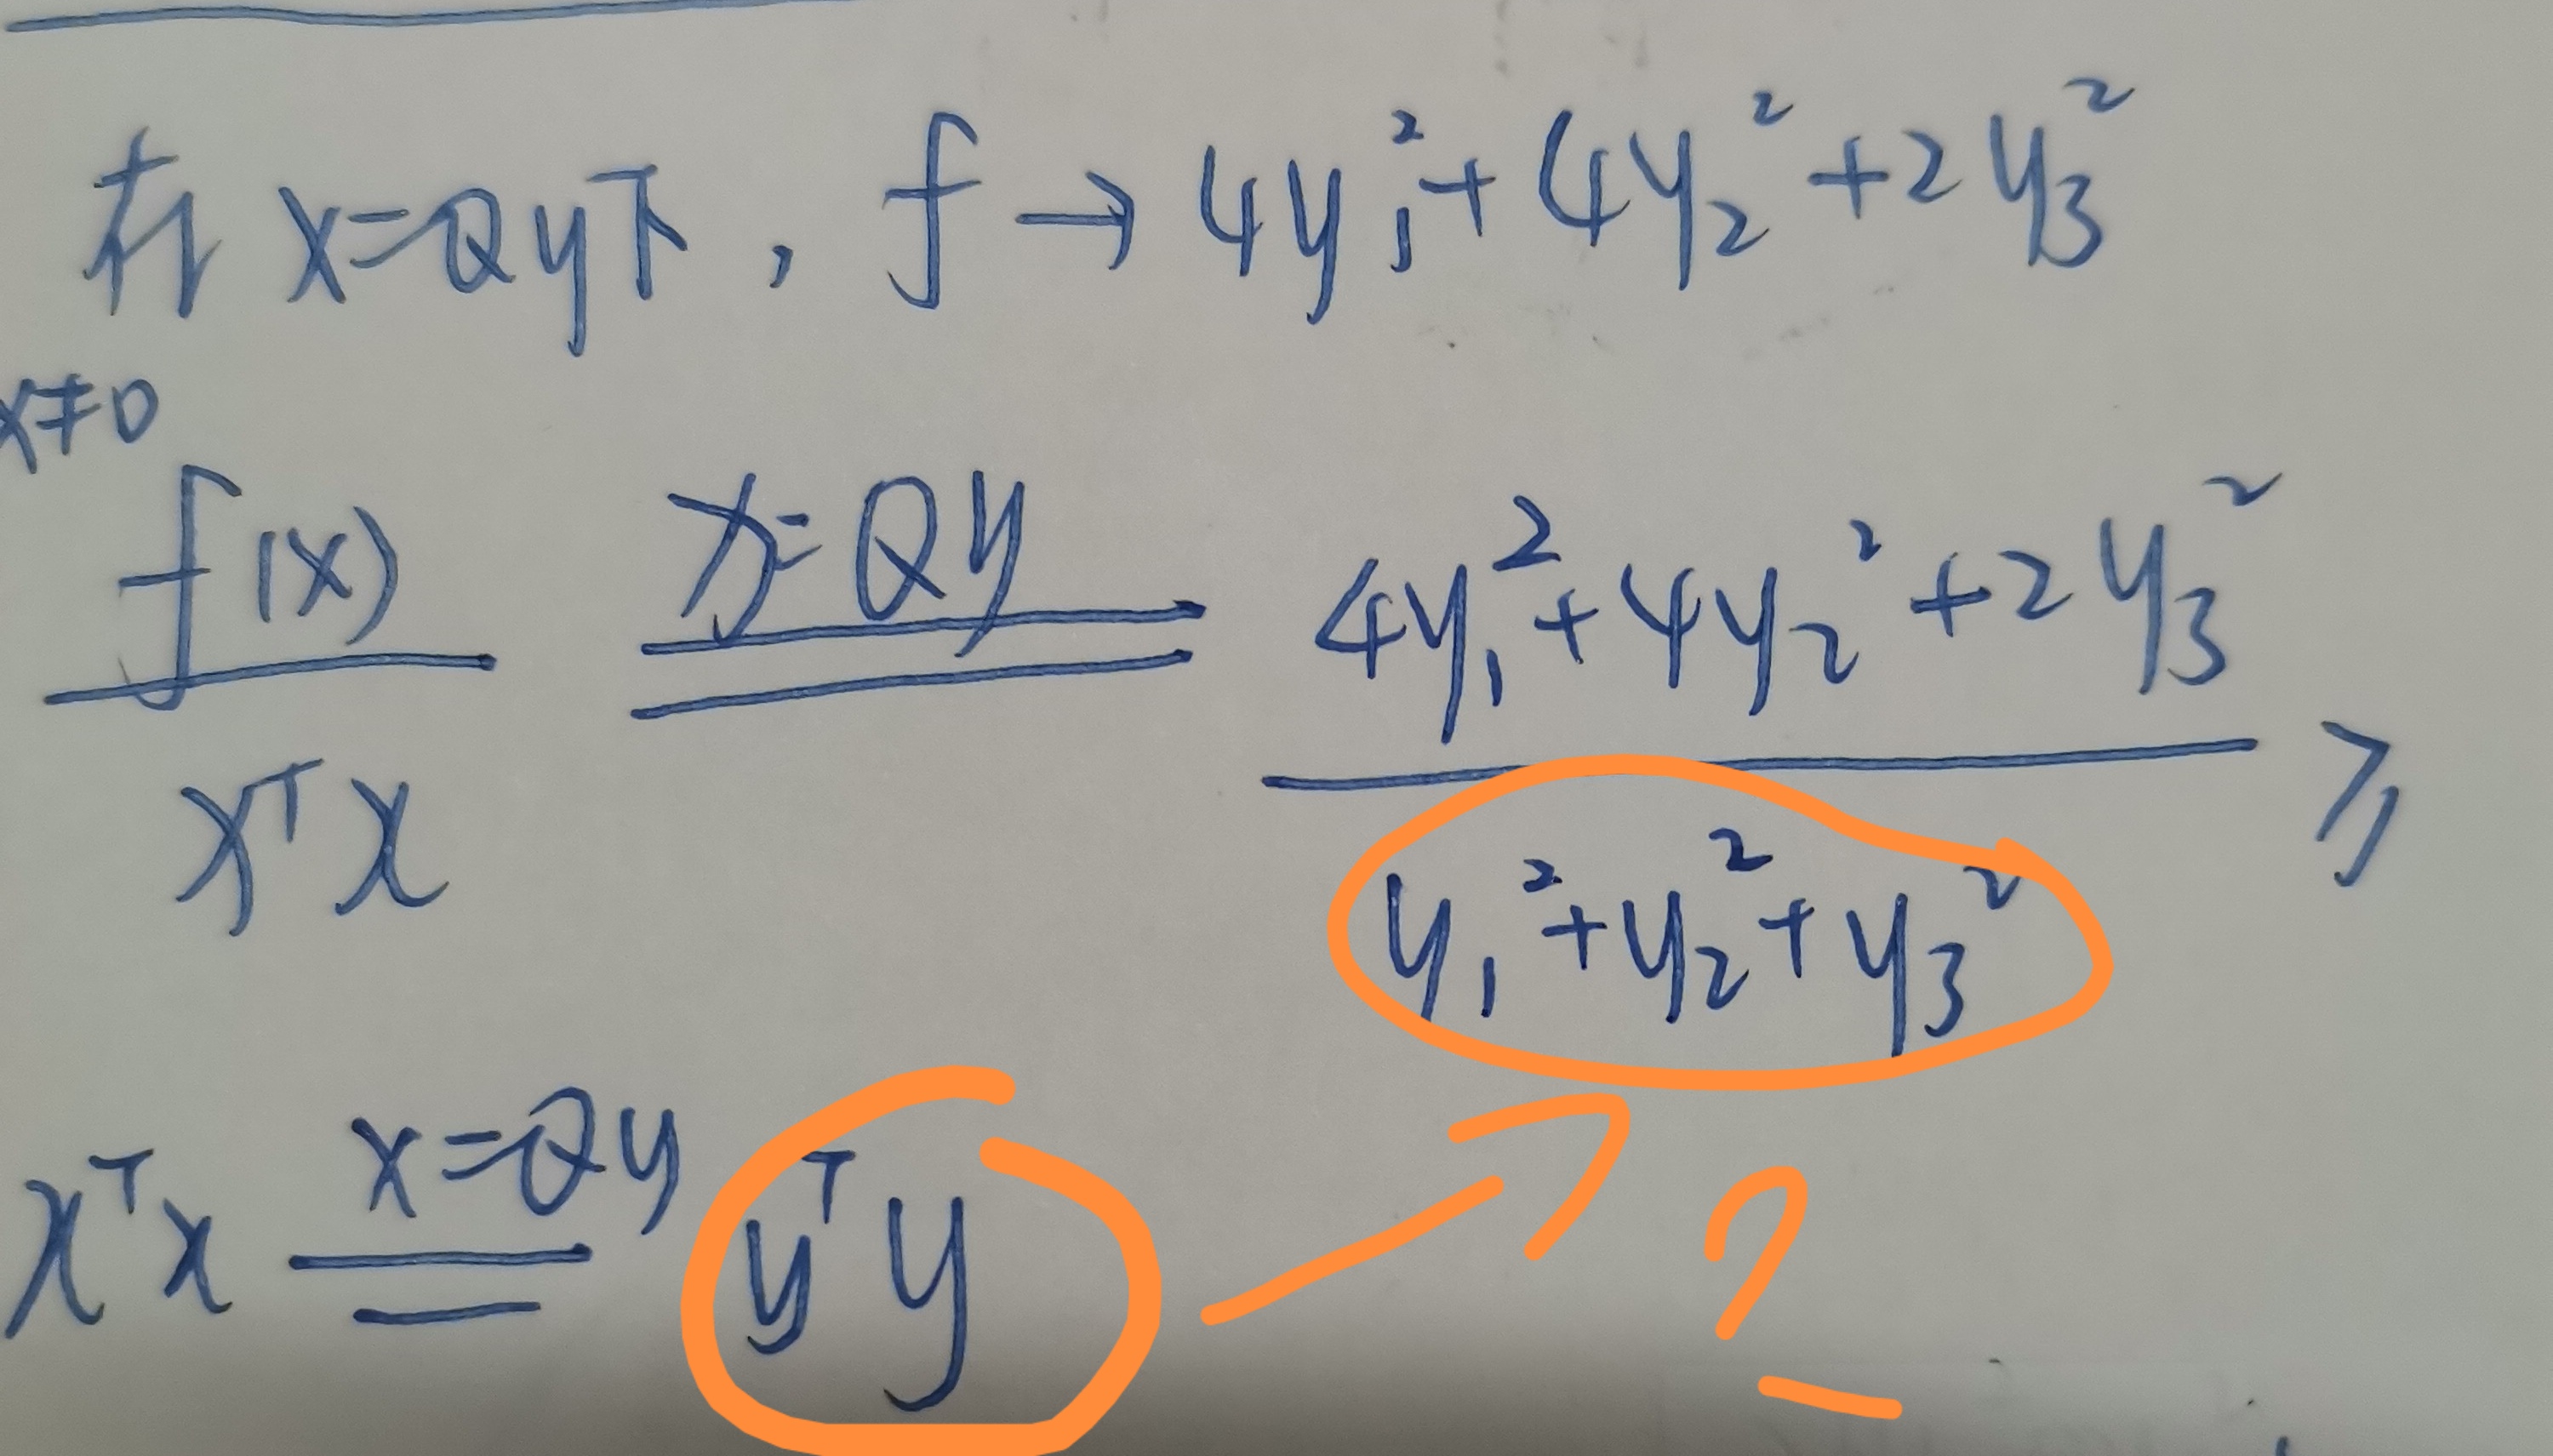 在 x=Qy下, f → 4y₁²+4y₂²+2y₃²
x≠0
f(x)/xᵀx x=Qy 4y₁²+4y₂²+2y₃²/y₁²+y₂²+y₃² ≥
xᵀx x=Qy yᵀy ?